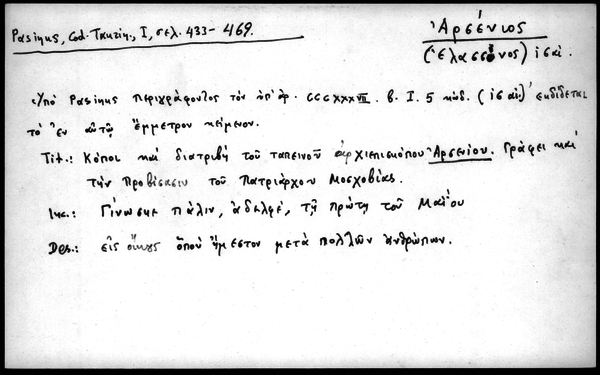 Pasinus, Cod. Taurin., I, σελ. 433-469.
Ἀρσένιος
(Ἐλασσῶνος) ις΄ αἰ.
Ὑπὸ Pasinus περιγράφοντος τὸν ὑπ' ἀρ. CCCXXXVII. b. I. 5 κώδ. (ις αἰ.) ἐκδίδεται
τὸ ἐν αὐτῷ ἔμμετρον κείμενον.
Tit.: Κόποι καὶ διατριβὴ τοῦ ταπεινοῦ ἀρχιεπισκόπου Ἀρσενίου. Γράφει καὶ
τὴν προβίβασιν τοῦ Πατριάρχου Μοσχοβίας.
Inc.: Γίνωσκε πάλιν, ἀδελφέ, τῇ πρώτῃ τοῦ Μαΐου
Des.: εἰς οἴκους ὅπου ἤμεστον μετὰ πολλῶν ἀνθρώπων.